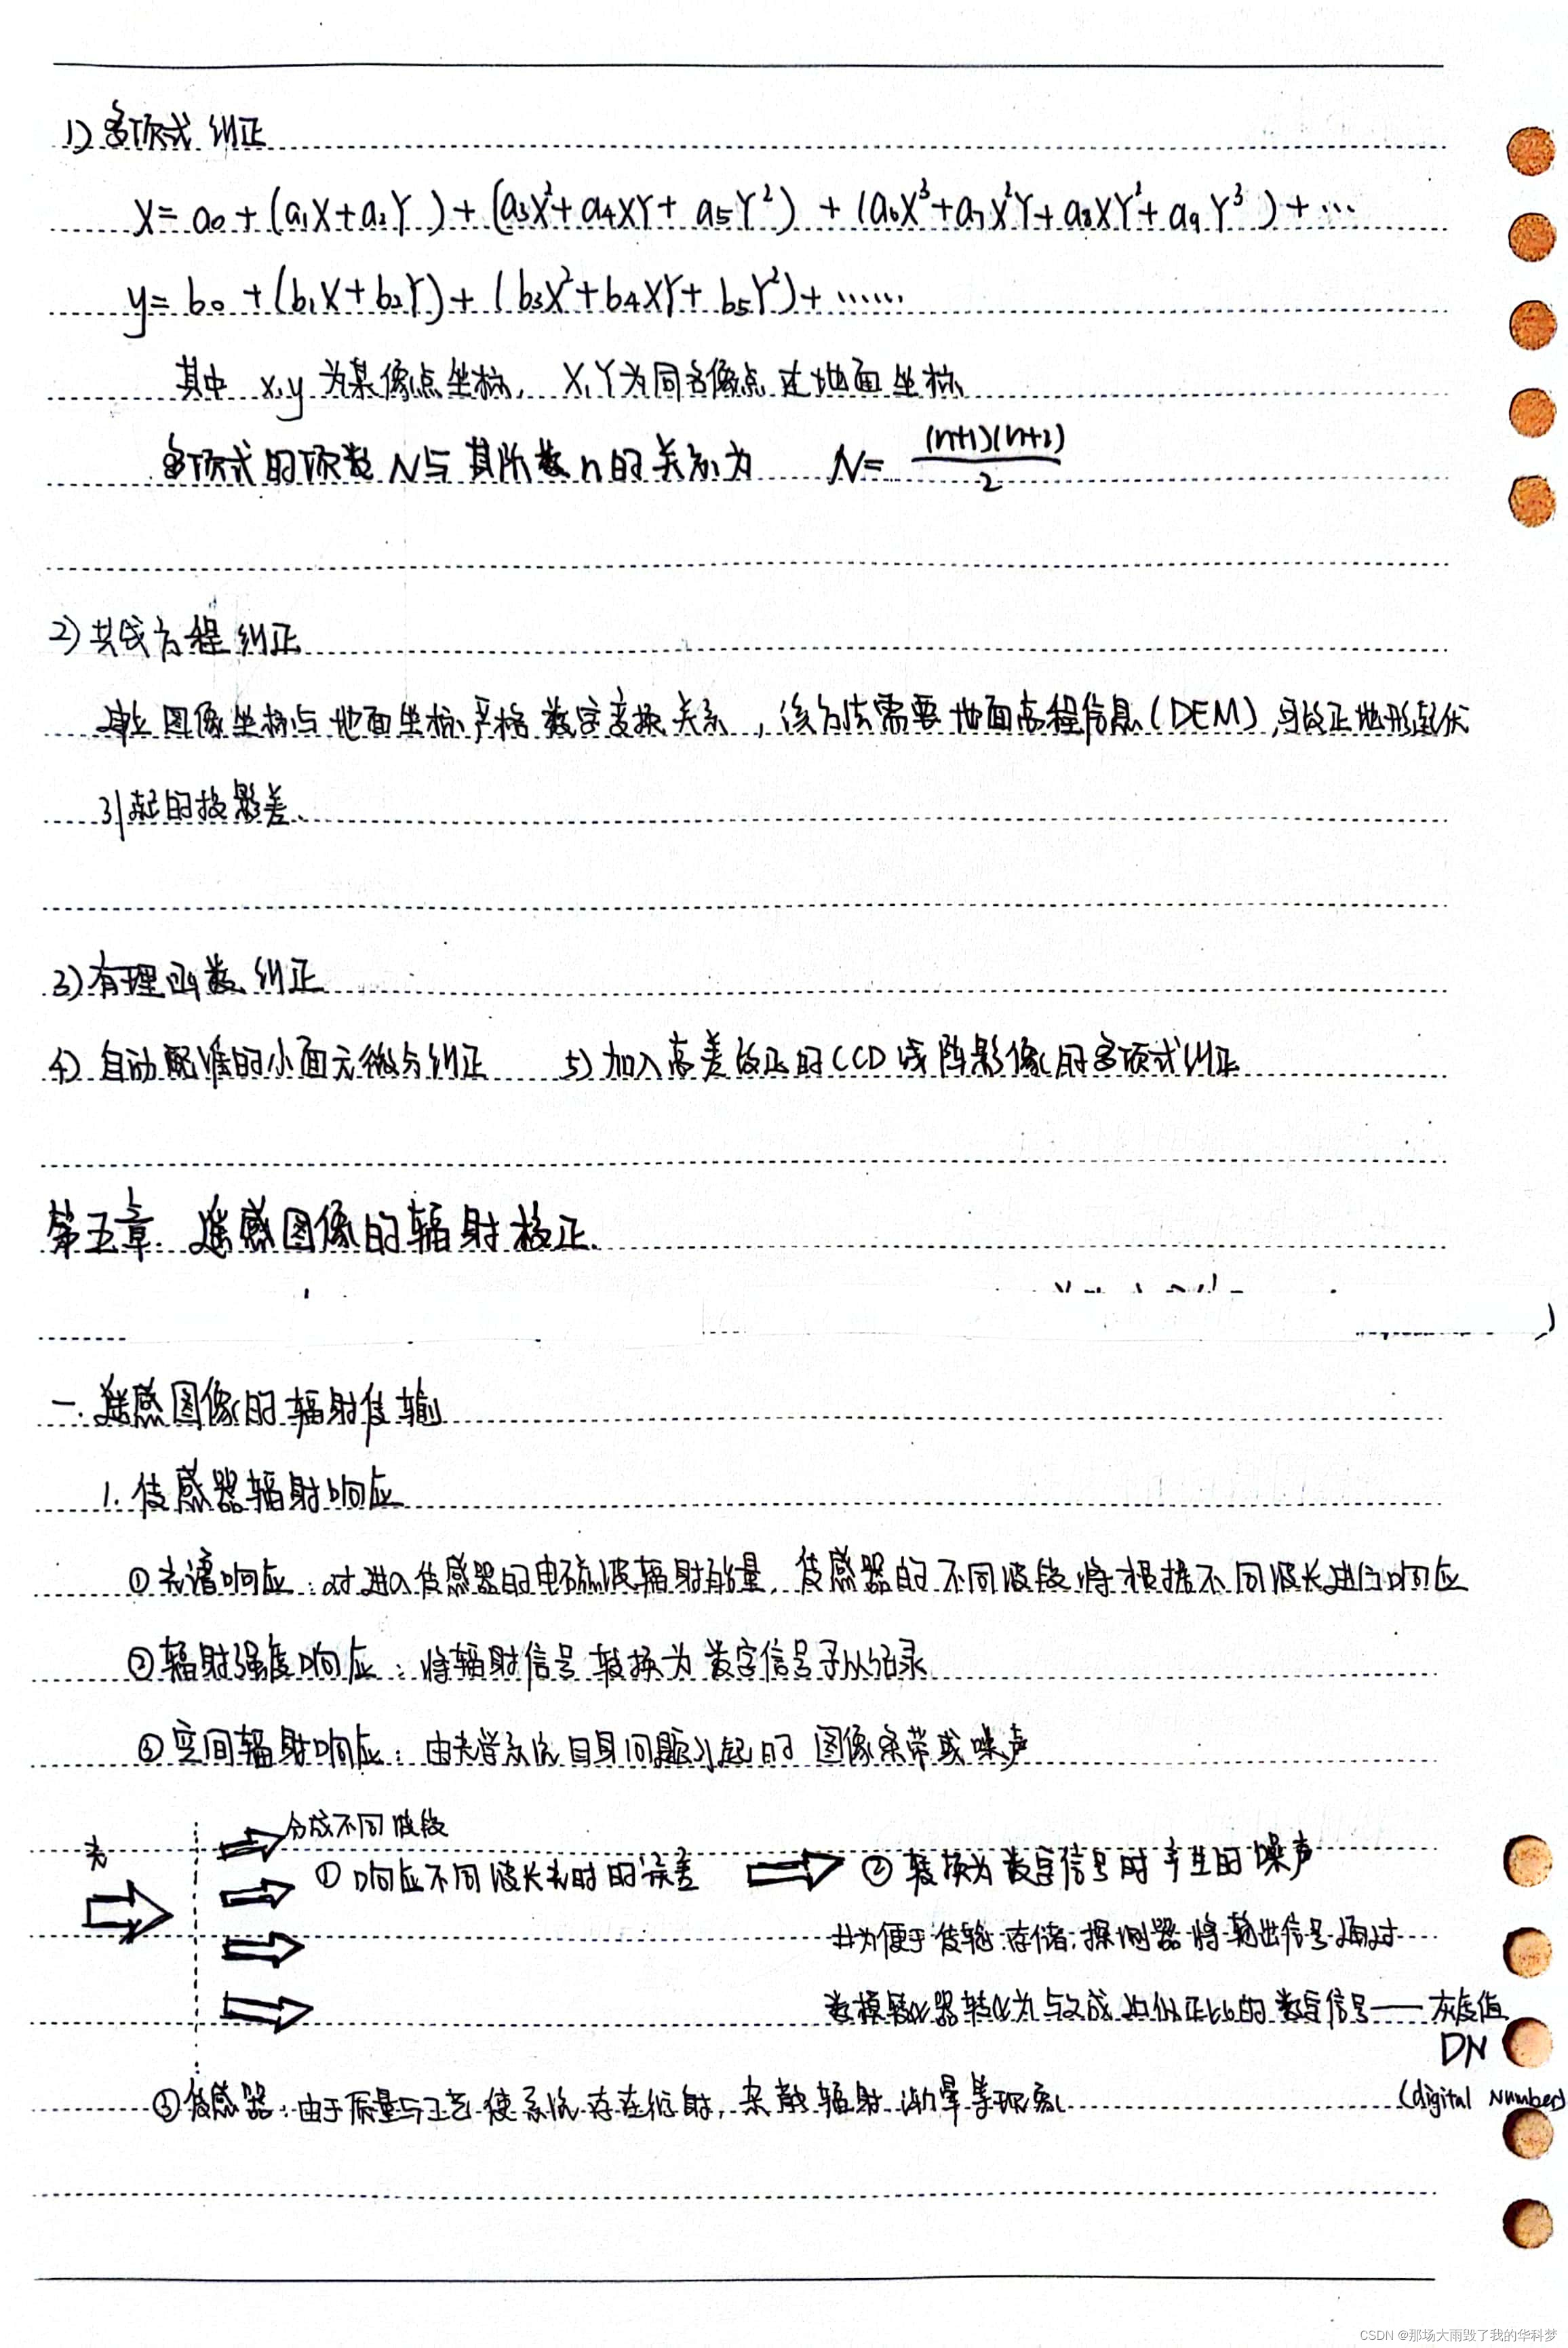 1) 多项式纠正
x = a₀ + (a₁X + a₂Y) + (a₃X² + a₄XY + a₅Y²) + (a₆X³ + a₇X²Y + a₈XY² + a₉Y³) + …
y = b₀ + (b₁X + b₂Y) + (b₃X² + b₄XY + b₅Y²) + ……
其中 x,y 为某像点坐标, X,Y为同名像点 地面坐标
多项式的项数 N与其阶数n的关系为 N = (n+1)(n+2)/2
2) 共线方程纠正
建立图像坐标与地面坐标严格数字变换关系,该方法需要地面高程信息(DEM),可改正地形起伏
引起的投影差.
3) 有理函数纠正
4) 自动配准的小面元微分纠正 5) 加入高差改正的CCD线阵影像的多项式纠正
第五章 遥感图像的辐射校正
一. 遥感图像的辐射传输
1. 传感器辐射响应
① 光谱响应: 对进入传感器的电磁波辐射能量, 传感器的不同波段将根据不同波长进行响应
② 辐射强度响应: 将辐射信号转换为数字信号予以纪录
③ 空间辐射响应: 由光学系统自身问题引起的图像条带或噪声
光
分成不同波段
① 响应不同波长光时的误差 ② 转换为数字信号时产生的噪声
#为便于传输.存储,探测器将输出信号通过
数模转化器转化为与之成近似正比的数字信号——灰度值
DN
(digital number)
③ 传感器: 由于质量与工艺使系统存在衍射, 杂散辐射 渐晕等现象
CSDN @那场大雨毁了我的华科梦